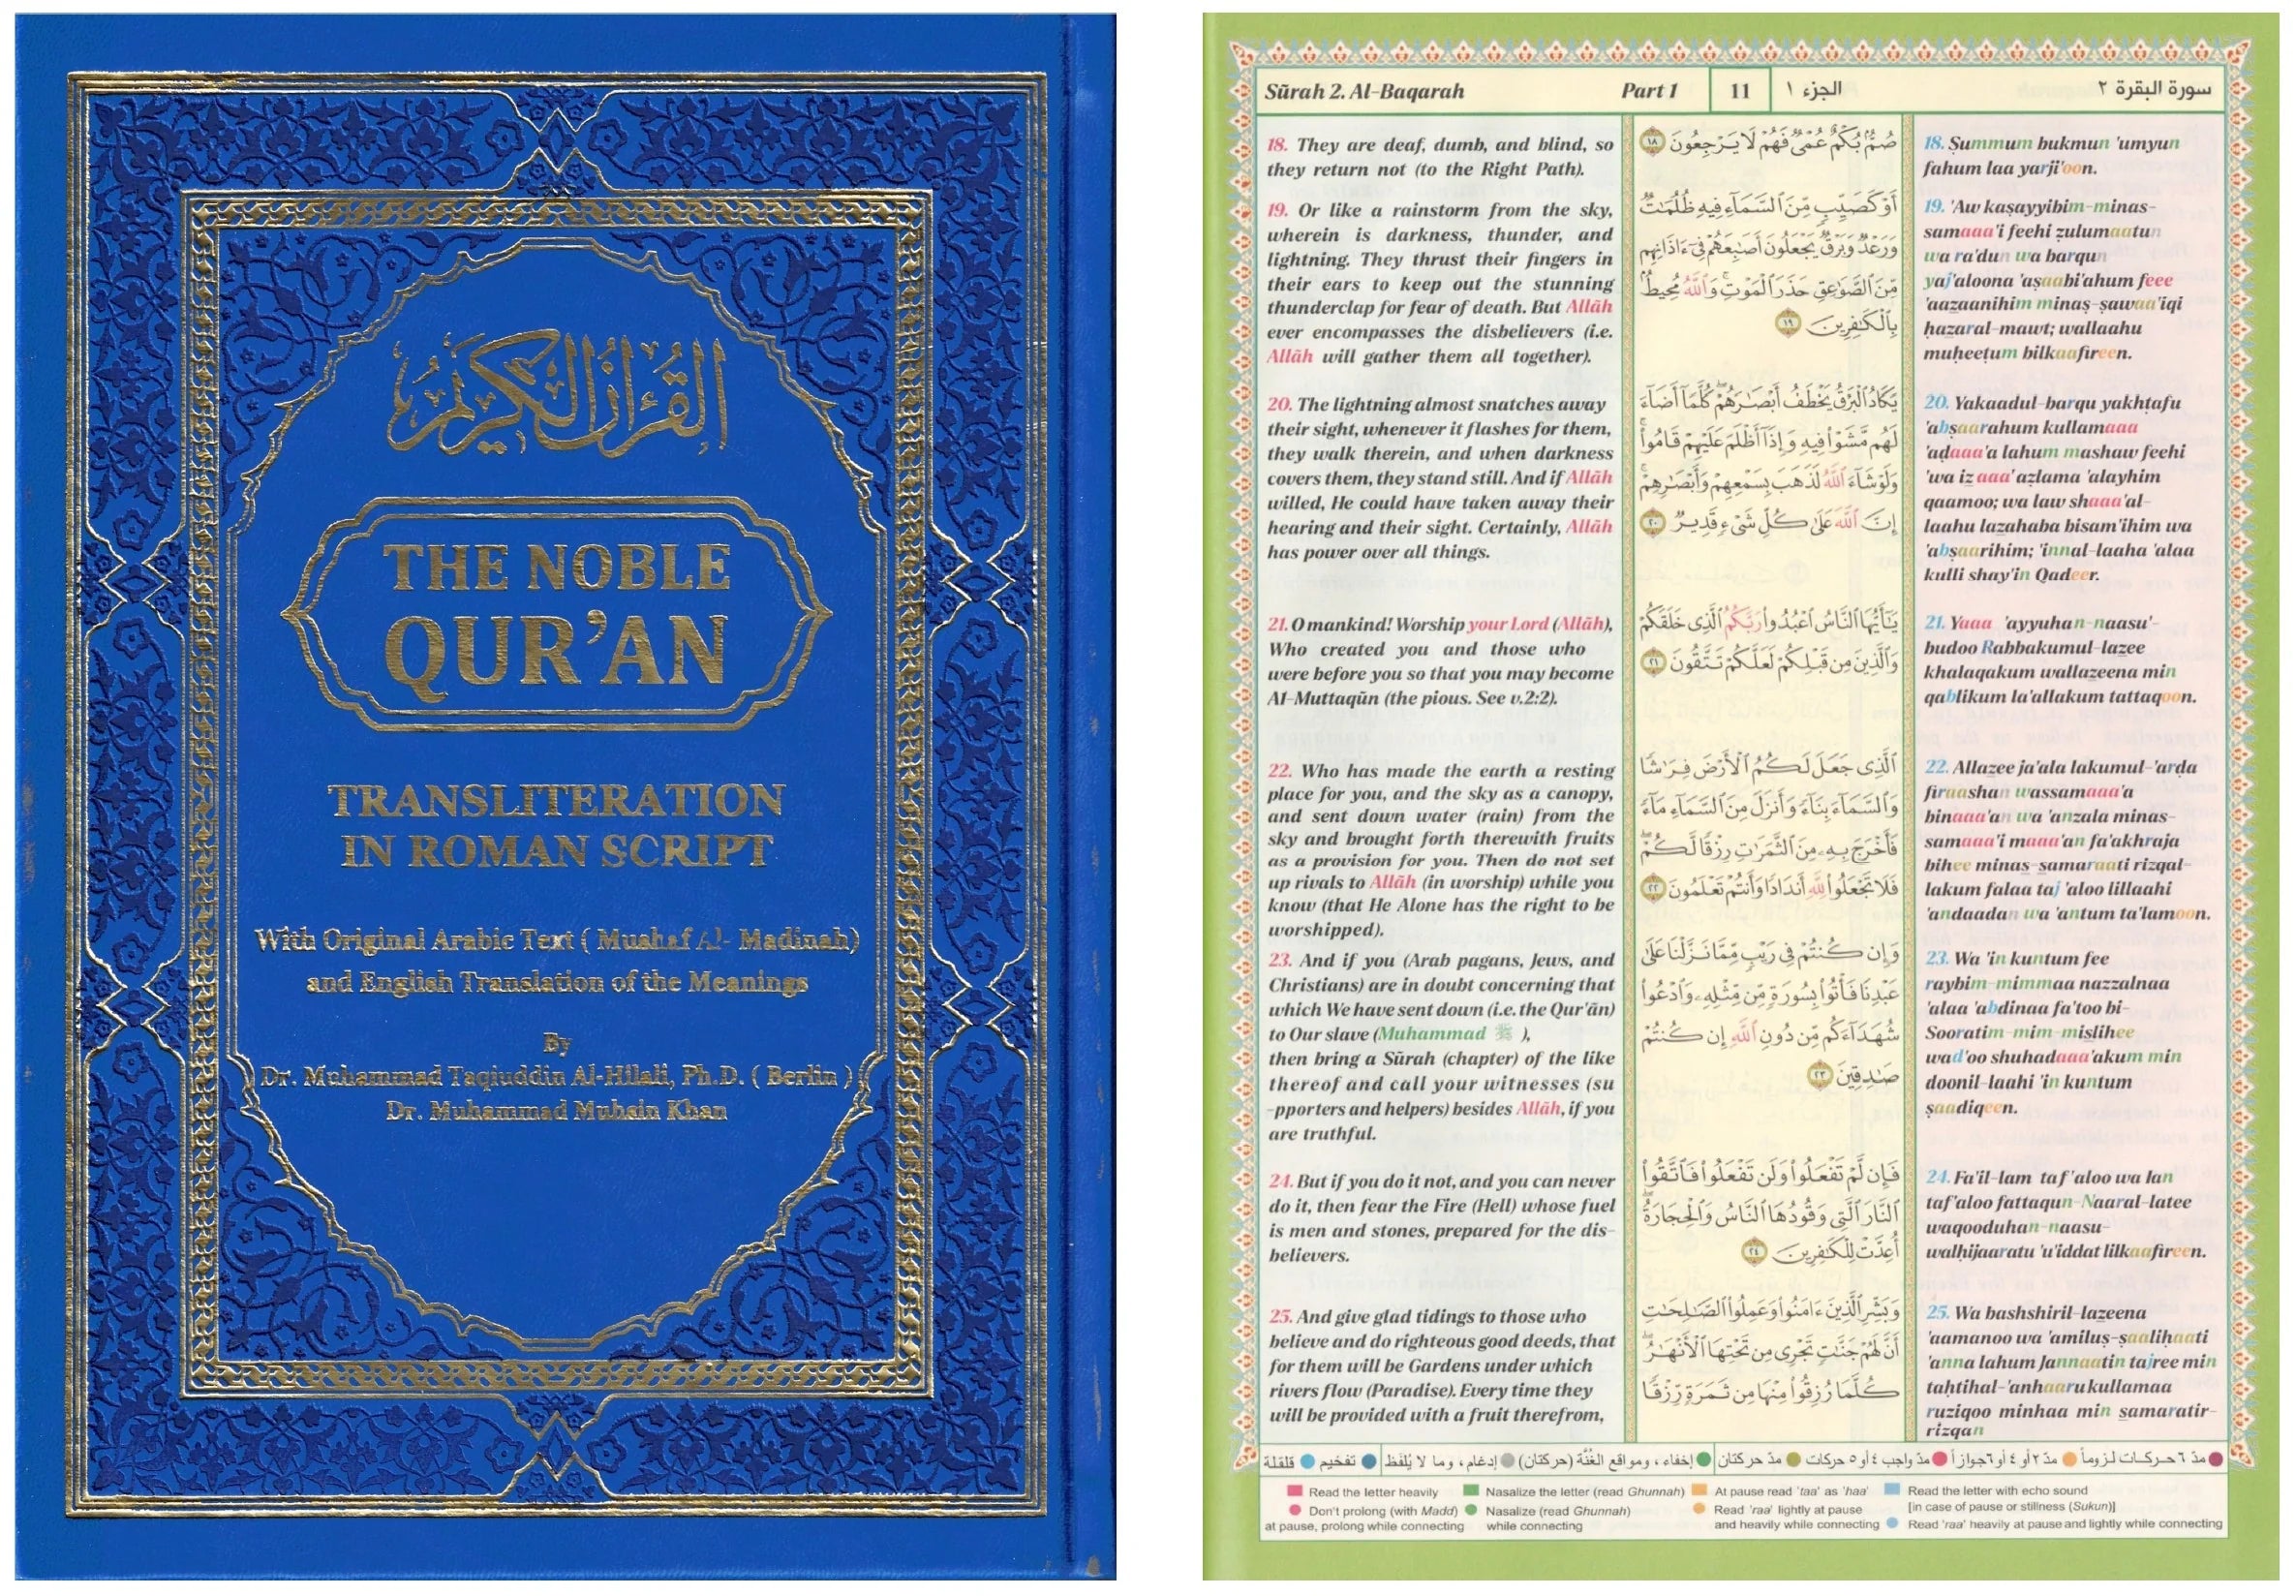 القرآن الكريم
THE NOBLE
QUR'AN
TRANSLITERATION
IN ROMAN SCRIPT
With Original Arabic Text ( Mushaf Al- Madinah)
and English Translation of the Meanings
By
Dr. Muhammad Taqiuddin Al-Hilali, Ph.D. ( Berlin )
Dr. Muhammad Muhsin Khan
Sūrah 2. Al-Baqarah Part 1 11 الجزء ١ سورة البقرة ٢
18. They are deaf, dumb, and blind, so
they return not (to the Right Path).
19. Or like a rainstorm from the sky,
wherein is darkness, thunder, and
lightning. They thrust their fingers in
their ears to keep out the stunning
thunderclap for fear of death. But Allāh
ever encompasses the disbelievers (i.e.
Allāh will gather them all together).
20. The lightning almost snatches away
their sight, whenever it flashes for them,
they walk therein, and when darkness
covers them, they stand still. And if Allāh
willed, He could have taken away their
hearing and their sight. Certainly, Allāh
has power over all things.
21. O mankind! Worship your Lord (Allāh),
Who created you and those who
were before you so that you may become
Al-Muttaqūn (the pious. See v.2:2).
22. Who has made the earth a resting
place for you, and the sky as a canopy,
and sent down water (rain) from the
sky and brought forth therewith fruits
as a provision for you. Then do not set
up rivals to Allāh (in worship) while you
know (that He Alone has the right to be
worshipped).
23. And if you (Arab pagans, Jews, and
Christians) are in doubt concerning that
which We have sent down (i.e. the Qur'ān)
to Our slave (Muhammad ﷺ ),
then bring a Sūrah (chapter) of the like
thereof and call your witnesses (su
-pporters and helpers) besides Allāh, if you
are truthful.
24. But if you do it not, and you can never
do it, then fear the Fire (Hell) whose fuel
is men and stones, prepared for the dis-
believers.
25. And give glad tidings to those who
believe and do righteous good deeds, that
for them will be Gardens under which
rivers flow (Paradise). Every time they
will be provided with a fruit therefrom,
صُمٌّۢ بُكْمٌ عُمْىٌ فَهُمْ لَا يَرْجِعُونَ ١٨
أَوْ كَصَيِّبٍ مِّنَ ٱلسَّمَآءِ فِيهِ ظُلُمَـٰتٌ
وَرَعْدٌ وَبَرْقٌ يَجْعَلُونَ أَصَـٰبِعَهُمْ فِىٓ ءَاذَانِهِم
مِّنَ ٱلصَّوَٰعِقِ حَذَرَ ٱلْمَوْتِ ۚ وَٱللَّهُ مُحِيطٌۢ
بِٱلْكَـٰفِرِينَ ١٩
يَكَادُ ٱلْبَرْقُ يَخْطَفُ أَبْصَـٰرَهُمْ ۖ كُلَّمَآ أَضَآءَ
لَهُم مَّشَوْا۟ فِيهِ وَإِذَآ أَظْلَمَ عَلَيْهِمْ قَامُوا۟ ۚ
وَلَوْ شَآءَ ٱللَّهُ لَذَهَبَ بِسَمْعِهِمْ وَأَبْصَـٰرِهِمْ ۚ
إِنَّ ٱللَّهَ عَلَىٰ كُلِّ شَىْءٍ قَدِيرٌ ٢٠
يَـٰٓأَيُّهَا ٱلنَّاسُ ٱعْبُدُوا۟ رَبَّكُمُ ٱلَّذِى خَلَقَكُمْ
وَٱلَّذِينَ مِن قَبْلِكُمْ لَعَلَّكُمْ تَتَّقُونَ ٢١
ٱلَّذِى جَعَلَ لَكُمُ ٱلْأَرْضَ فِرَٰشًا
وَٱلسَّمَآءَ بِنَآءً وَأَنزَلَ مِنَ ٱلسَّمَآءِ مَآءً
فَأَخْرَجَ بِهِۦ مِنَ ٱلثَّمَرَٰتِ رِزْقًا لَّكُمْ ۖ
فَلَا تَجْعَلُوا۟ لِلَّهِ أَندَادًا وَأَنتُمْ تَعْلَمُونَ ٢٢
وَإِن كُنتُمْ فِى رَيْبٍ مِّمَّا نَزَّلْنَا عَلَىٰ
عَبْدِنَا فَأْتُوا۟ بِسُورَةٍ مِّن مِّثْلِهِۦ وَٱدْعُوا۟
شُهَدَآءَكُم مِّن دُونِ ٱللَّهِ إِن كُنتُمْ
صَـٰدِقِينَ ٢٣
فَإِن لَّمْ تَفْعَلُوا۟ وَلَن تَفْعَلُوا۟ فَٱتَّقُوا۟
ٱلنَّارَ ٱلَّتِى وَقُودُهَا ٱلنَّاسُ وَٱلْحِجَارَةُ ۖ
أُعِدَّتْ لِلْكَـٰفِرِينَ ٢٤
وَبَشِّرِ ٱلَّذِينَ ءَامَنُوا۟ وَعَمِلُوا۟ ٱلصَّـٰلِحَـٰتِ
أَنَّ لَهُمْ جَنَّـٰتٍ تَجْرِى مِن تَحْتِهَا ٱلْأَنْهَـٰرُ ۖ
كُلَّمَا رُزِقُوا۟ مِنْهَا مِن ثَمَرَةٍ رِّزْقًا
18. Ṣummum bukmun 'umyun
fahum laa yarji'oon.
19. 'Aw kaṣayyibim-minas-
samaaa'i feehi ẓulumaatun
wa ra'dun wa barqun
yaj'aloona 'aṣaabi'ahum feee
'aazaanihim minaṣ-ṣawaa'iqi
ḥazaral-mawt; wallaahu
muḥeeṭum bilkaafireen.
20. Yakaadul-barqu yakhṭafu
'abṣaarahum kullamaaa
'aḍaaa'a lahum mashaw feehi
'wa iz aaa' aẓlama 'alayhim
qaamoo; wa law shaaa'al-
laahu lazahaba bisam'ihim wa
'abṣaarihim; 'innal-laaha 'alaa
kulli shay'in Qadeer.
21. Yaaa 'ayyuhan-naasu'-
budoo Rabbakumul-lazee
khalaqakum wallazeena min
qablikum la'allakum tattaqoon.
22. Allazee ja'ala lakumul-'arḍa
firaashan wassamaaa'a
binaaa'an wa 'anzala minas-
samaaa'i maaa'an fa'akhraja
bihee minas-samaraati rizqal-
lakum falaa taj 'aloo lillaahi
'andaadan wa 'antum ta'lamoon.
23. Wa 'in kuntum fee
raybim-mimmaa nazzalnaa
'alaa 'abdinaa fa'too bi-
Sooratim-mim-mislihee
wad'oo shuhadaaa'akum min
doonil-laahi 'in kuntum
ṣaadiqeen.
24. Fa'il-lam taf'aloo wa lan
taf'aloo fattaqun-Naaral-latee
waqooduhan-naasu-
walḥijaaratu 'u'iddat lilkaafireen.
25. Wa bashshiril-lazeena
'aamanoo wa 'amiluṣ-ṣaaliḥaati
'anna lahum Jannaatin tajree min
taḥtihal-'anhaaru kullamaa
ruziqoo minhaa min samaratir-
rizqan
مدّ ٦ حركات لزوماً مدّ ٢ أو ٤ أو ٦ جوازاً مدّ واجب ٤ أو ٥ حركات مدّ حركتان إخفاء، ومواقع الغُنَّة (حركتان) إدغام، وما لا يُلفَظ تفخيم قلقلة
Read the letter heavily Nasalize the letter (read Ghunnah) At pause read 'taa' as 'haa' Read the letter with echo sound
[in case of pause or stillness (Sukun)]
Don't prolong (with Madd) Nasalize (read Ghunnah) Read 'raa' lightly at pause
at pause, prolong while connecting while connecting and heavily while connecting Read 'raa' heavily at pause and lightly while connecting